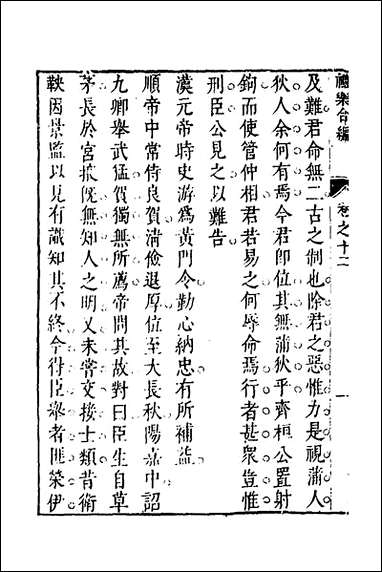 禮樂合編
卷之十二
及難君命無二古之制也除君之惡惟力是視蒲人
狄人余何有焉今君卽位其無蒲狄乎齊桓公置射
鉤而使管仲相君若易之何辱命焉行者甚衆豈惟
刑臣公見之以難告
漢元帝時史游爲黃門令勤心納忠有所補益
順帝中常侍良賀清儉退厚位至大長秋陽嘉中詔
九卿舉武猛賀獨無所薦帝問其故對曰臣生自草
茅長於宮掖旣無知人之明又未嘗交接士類昔衛
鞅因景監以見有識知其不終今得臣舉者匪榮伊